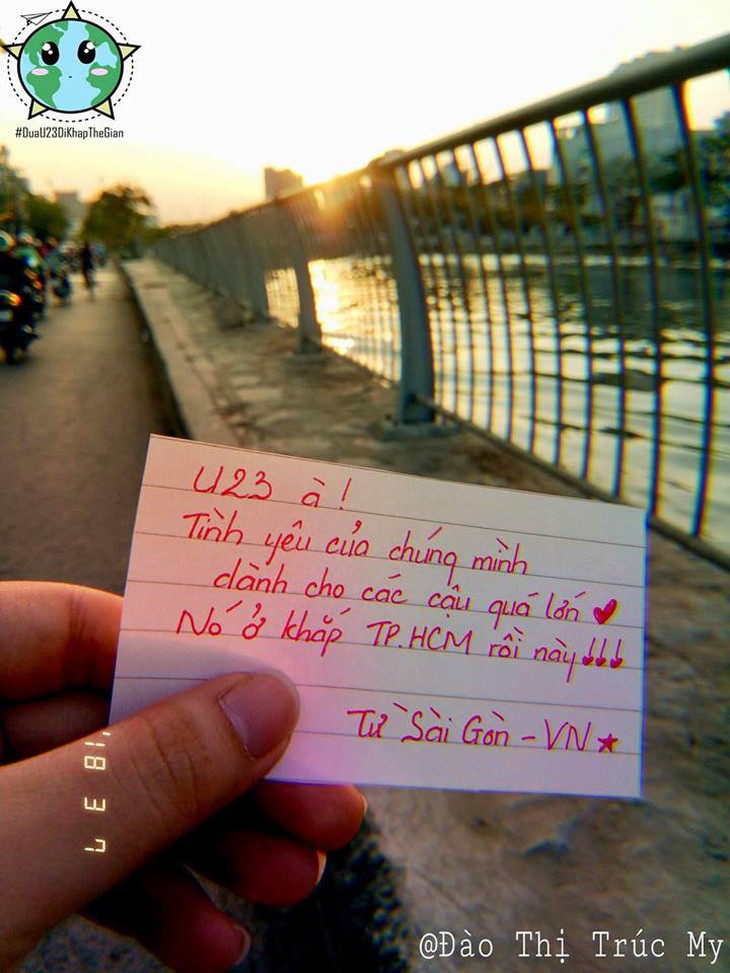 #DuaU23DiKhapTheGian
U23 à!
Tình yêu của chúng mình
dành cho các cậu quá lớn
Nó ở khắp TP.HCM rồi này!!!
Từ Sài Gòn - VN
'18 3 7
@Đào Thị Trúc My